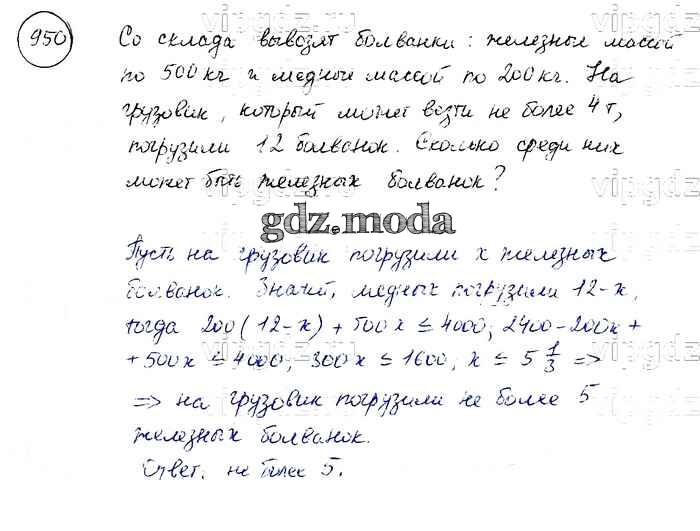 950 Со склада вывозят болванки: железные массой
по 500 кг и медные массой по 200 кг. На
грузовик, который может везти не более 4 т,
погрузили 12 болванок. Сколько среди них
может быть железных болванок?
gdz.moda
Пусть на грузовик погрузили x железных
болванок. Значит, медных погрузили 12-x,
тогда 200(12-x) + 500x ≤ 4000; 2400-200x +
+ 500x ≤ 4000; 300x ≤ 1600; x ≤ 5 1/3 =>
=> на грузовик погрузили не более 5
железных болванок.
Ответ. не более 5.
vipgdz.ru
vipgdz.ru
vipgdz.ru
vipgdz.ru